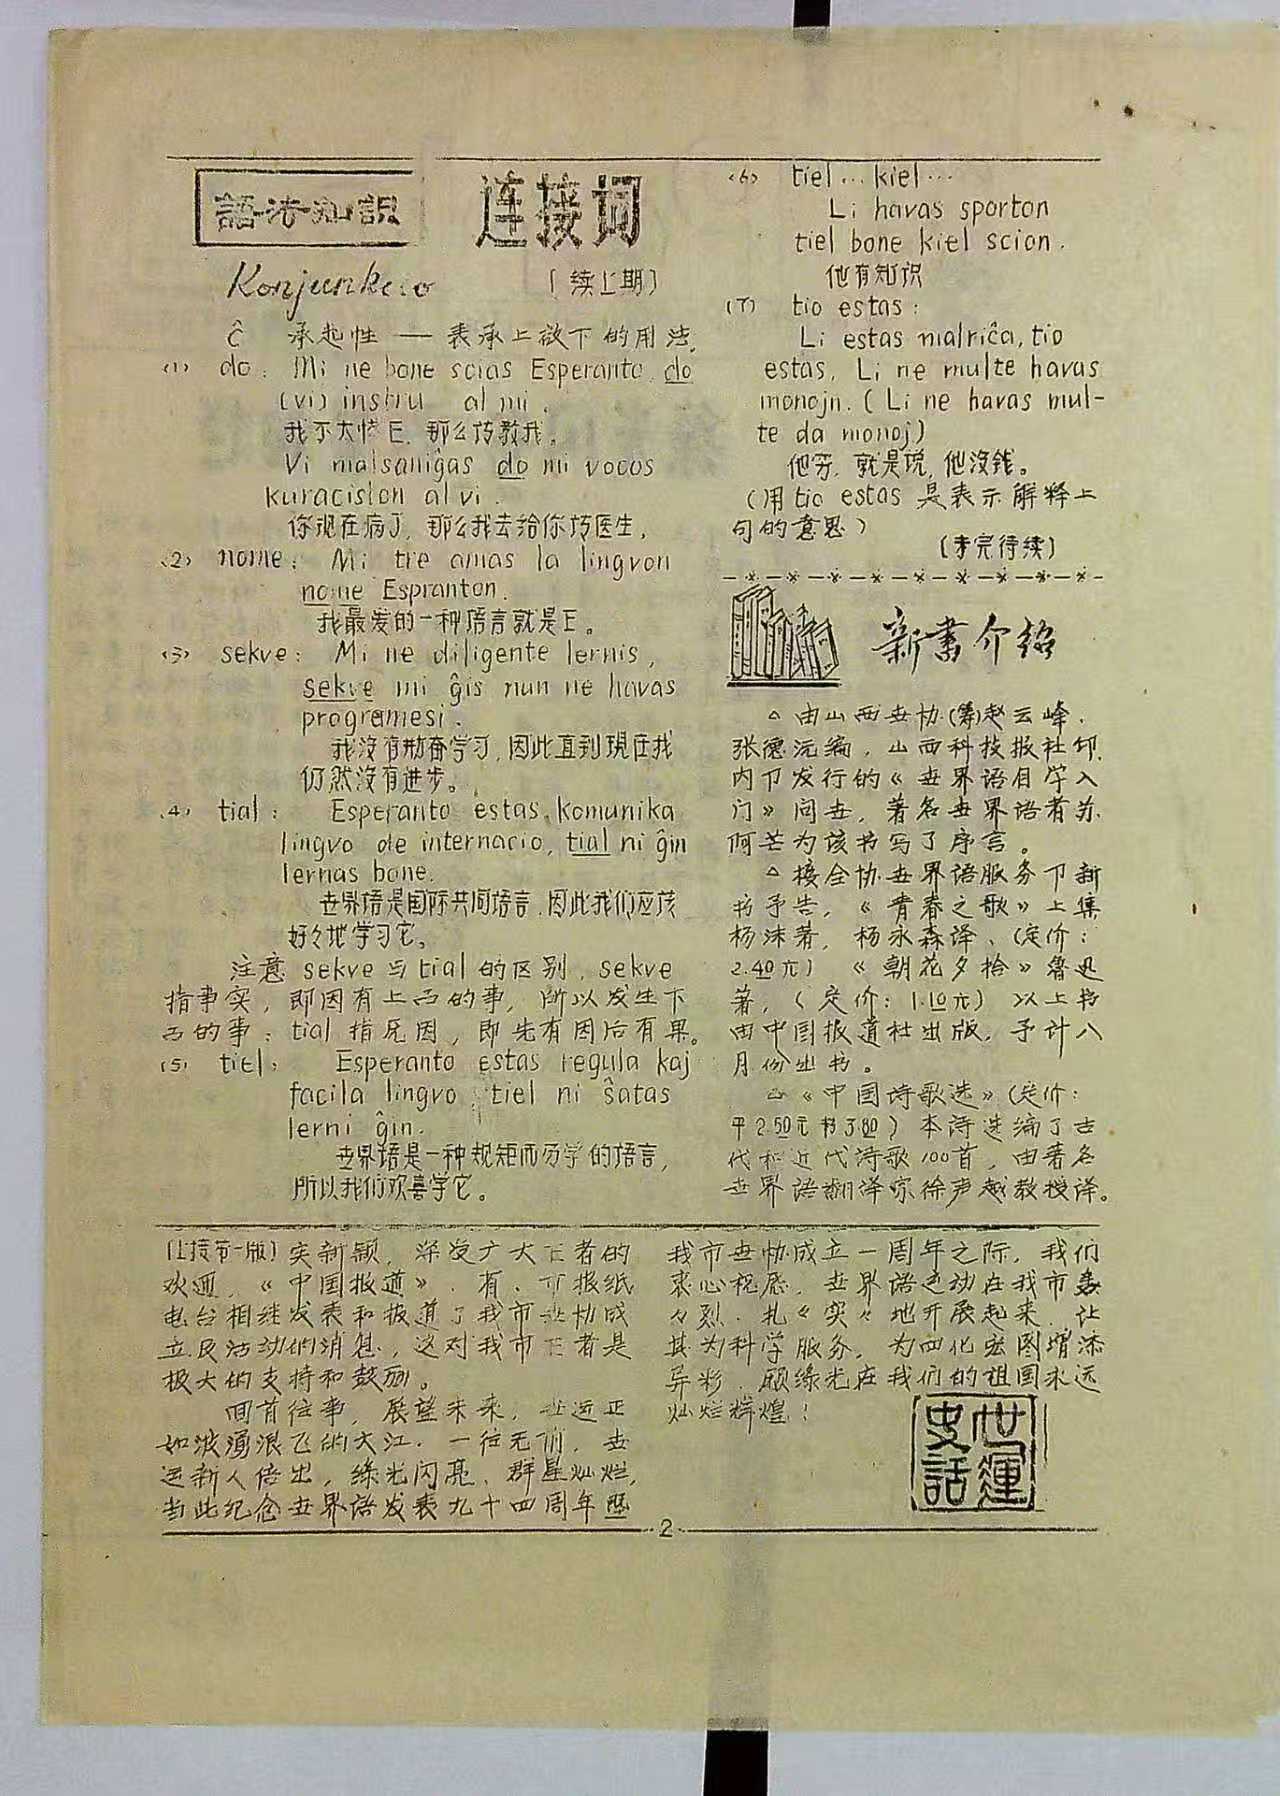 語法知识
连接词
Konjunkcio
〔续上期〕
ĉ 承起性 — 表承上啟下的用法.
(1) do: Mi ne bone scias Esperanto, do
(vi) instru al mi.
我不太懂E. 那么请教我。
Vi malsaniĝas do mi vocos
kuraciston al vi.
你现在病了, 那么我去给你请医生,
(2) nome: Mi tre amas la lingvon
nome Espranton.
我最爱的一种语言就是E。
(3) sekve: Mi ne diligente lernis,
sekve mi ĝis nun ne havas
progremesi.
我没有勤奋学习, 因此直到现在我
仍然没有进步。
(4) tial: Esperanto estas komunika
lingvo de internacio, tial ni ĝin
lernas bone.
世界语是国际共同语言, 因此我们应该
好々地学习它。
注意 sekve 与 tial 的区别, sekve
指事实, 即因有上面的事, 所以发生下
面的事; tial 指原因, 即先有因后有果。
(5) tiel: Esperanto estas regula kaj
facila lingvo, tiel ni ŝatas
lerni ĝin.
世界语是一种规矩而易学的语言,
所以我们欢喜学它。
(6) tiel … kiel …
Li havas sporton
tiel bone kiel scion.
他有知识
(7) tio estas:
Li estas malriĉa, tio
estas, Li ne multe havas
monojn. (Li ne havas mul-
te da monoj)
他穷, 就是说, 他没钱。
(用 tio estas 是表示解释上
句的意思)
〔未完待续〕
新書介绍
△ 由山西世协(筹)赵云峰.
张德沅编, 山西科技报社印,
内卩发行的《世界语自学入
门》问世, 著名世界语者苏.
阿芒为该书写了序言。
△ 接全协世界语服务卩新
书予告, 《青春之歌》上集
杨沫著, 杨永森译、(定价:
2.40元) 《朝花夕拾》鲁迅
著, (定价: 1.10元) 以上书
由中国报道社出版, 予计八
月份出书。
△《中国诗歌选》(定价:
平2.50元 精3.80) 本诗选编了古
代和近代诗歌100首, 由著名
世界语翻译家徐声越教授译。
〔上接第一版〕实新颖, 深受广大E者的
欢迎, 《中国报道》. 有. 市报纸
电台相继发表和报道了我市世协成
立及活动的消息, 这对我市E者是
极大的支持和鼓励。
回首往事, 展望未来, 世运正
如波涌浪飞的大江. 一往无前, 世
运新人倍出, 绿光闪亮、群星灿烂,
当此纪念世界语发表九十四周年暨
我市世协成立一周年之际, 我们
衷心祝愿, 世界语运动在我市轰
々烈. 扎《实《地开展起来, 让
其为科学服务, 为四化宏图增添
异彩. 愿绿光在我们的祖国永远
灿烂辉煌!
世運史話
2